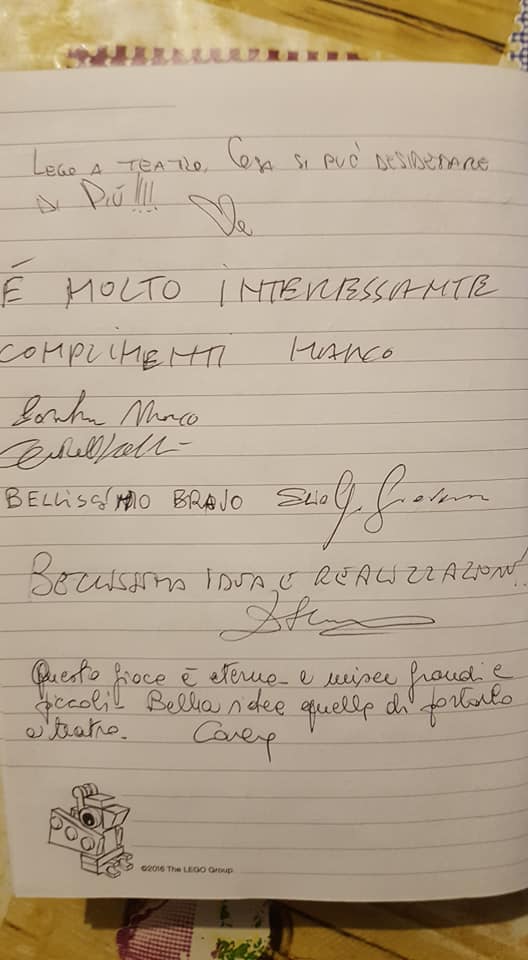 LEGO A TEATRO, COSA SI PUÒ DESIDERARE
DI PIÙ!!!!
È MOLTO INTERESSANTE
COMPLIMENTI MARCO
Marco
BELLISSIMO BRAVO
BELLISSIMA IDEA E REALIZZAZION!!
Questo gioco è eterno e unisce grandi e
piccoli - Bella idea quella di portarlo
a teatro.
©2016 The LEGO Group